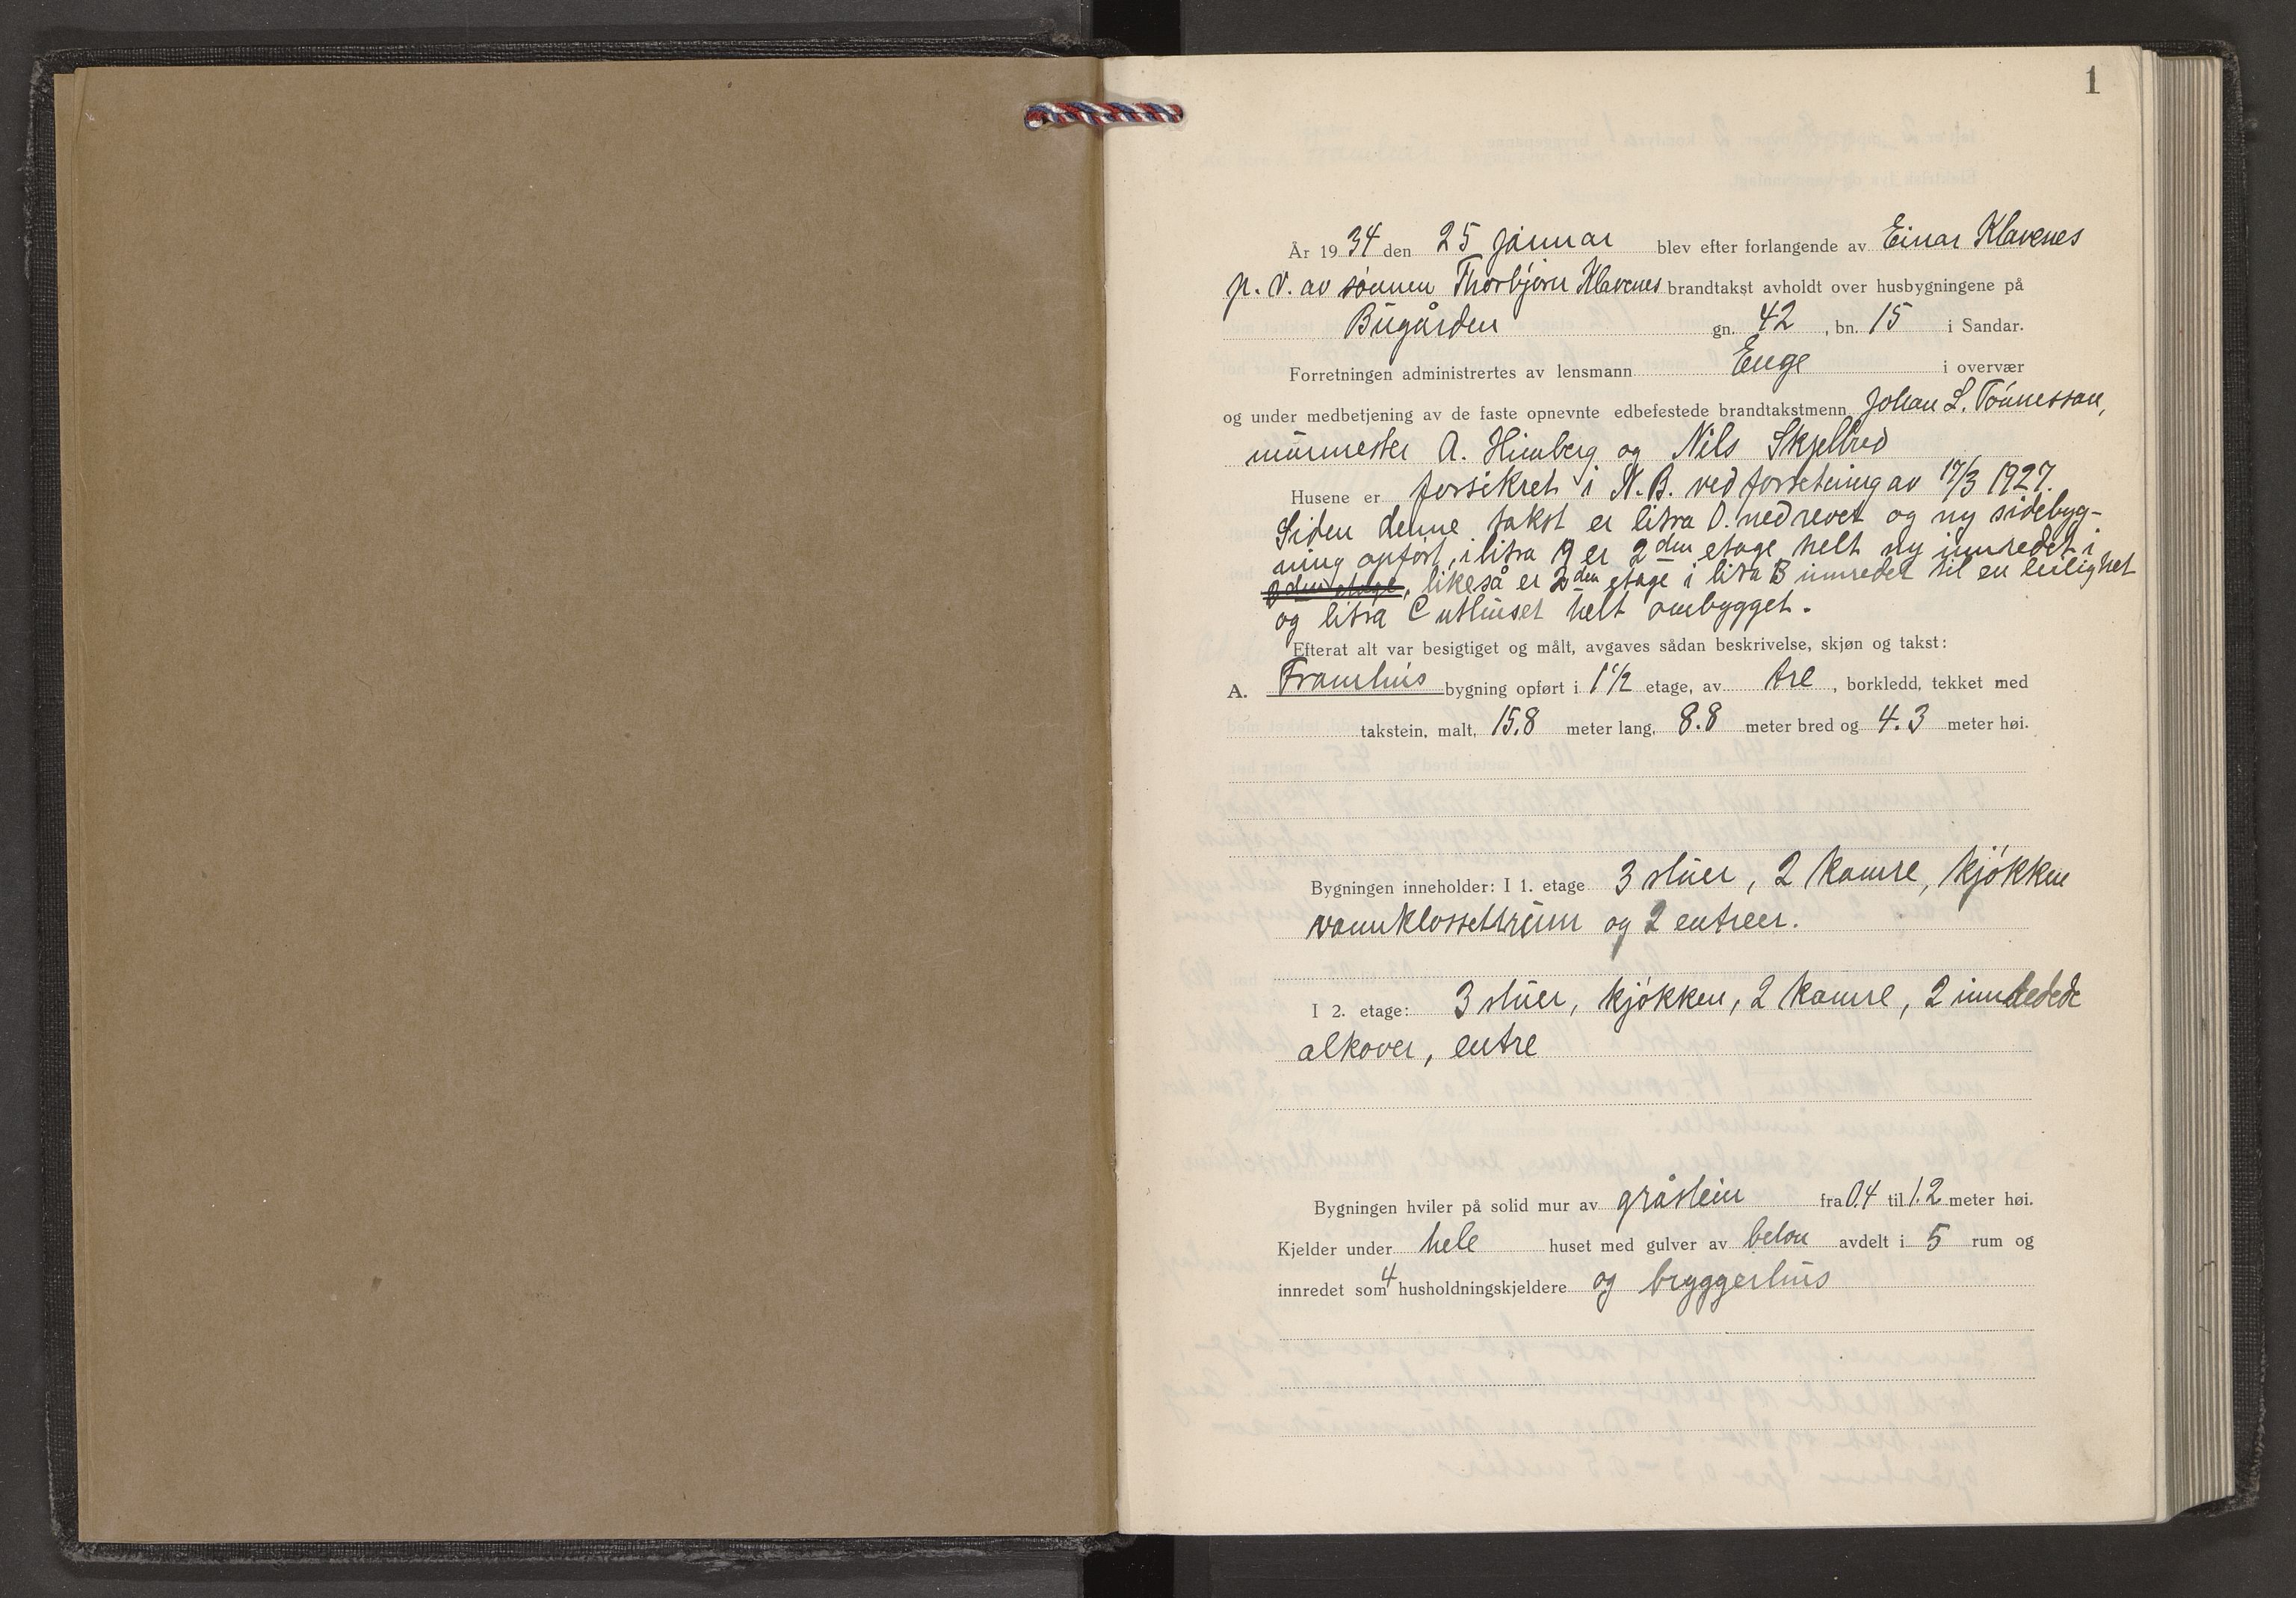 1
År 1934 den 25 januar blev efter forlangende av Einar Klavenes
p. v. av sønnen Thorbjørn Klavenes brandtakst avholdt over husbygningene på
Bugården gn. 42, bn. 15 i Sandar.
Forretningen administrertes av lensmann Enge i overvær
og under medbetjening av de faste opnevnte edbefestede brandtakstmenn Johan L. Tønnessen,
murmester A. Himberg og Nils Skjelbred
Husene er forsikret i N. B. ved forretning av 17/3 1927.
Siden denne takst er litra D. nedrevet og ny sidebyg-
ning opført, i litra A er 2den etage helt ny innredet i
2den etage, likeså er 2den etage i litra B innredet til en leilighet
og litra C uthuset helt ombygget.
Efterat alt var besigtiget og målt, avgaves sådan beskrivelse, skjøn og takst:
A. Framhus bygning opført i 1 1/2 etage, av tre, borkledd, tekket med
takstein, malt, 15.8 meter lang, 8.8 meter bred og 4.3 meter høi.
Bygningen inneholder: I 1. etage 3 stuer, 2 kamre, kjøkken
vannklossettrum og 2 entreer.
I 2. etage: 3 stuer, kjøkken, 2 kamre, 2 innredede
alkover, entre
Bygningen hviler på solid mur av gråstein fra 0.4 til 1.2 meter høi.
Kjelder under hele huset med gulver av beton avdelt i 5 rum og
innredet som 4 husholdningskjeldere og bryggerhus